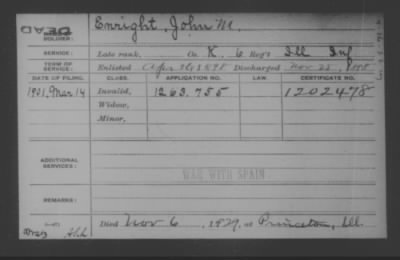 DEAD
SOLDIER: Enright, John M.
SERVICE: Late rank, Co. K, 6 Reg't Ill Inf
TERM OF SERVICE: Enlisted Apr 26, 1898 Discharged Nov 25, 1898
DATE OF FILING. CLASS. APPLICATION NO. LAW. CERTIFICATE NO.
1901, Mar 14 Invalid, 1263.755 1202478
Widow,
Minor,
ADDITIONAL SERVICES:
WAR WITH SPAIN
REMARKS:
Died Nov 6, 1929, at Princeton, Ill.